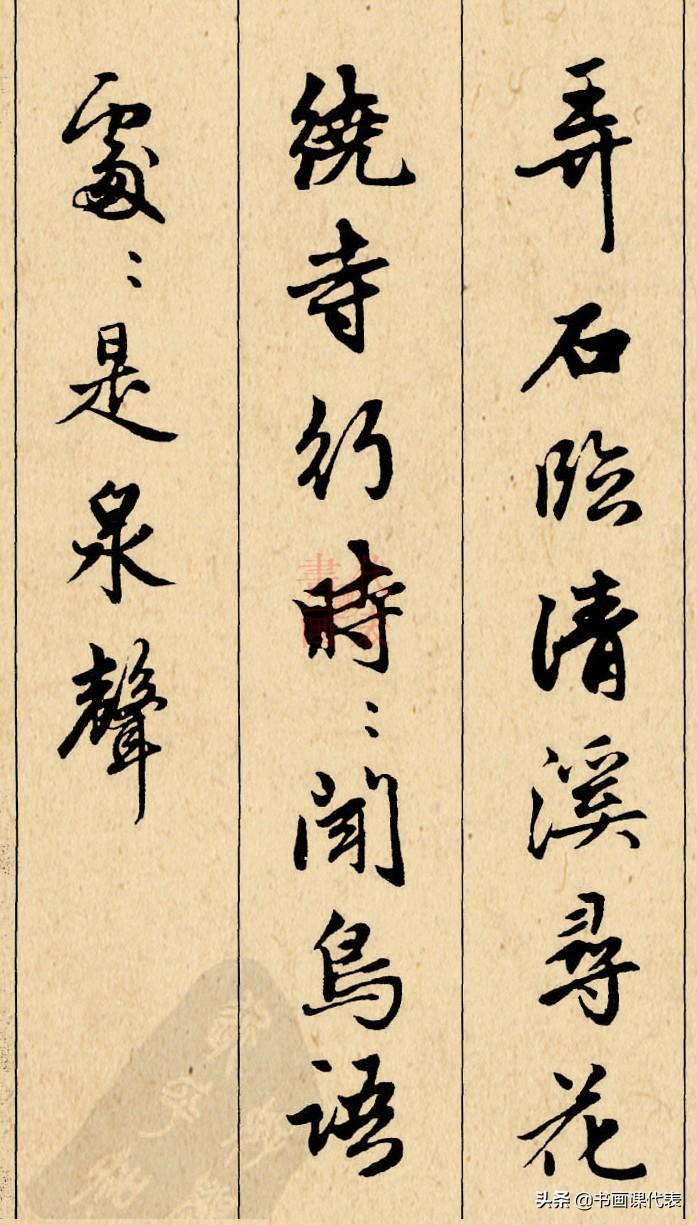 弄石临清溪尋花
繞寺行時：聞鳥語
處：是泉聲
头条 @书画课代表